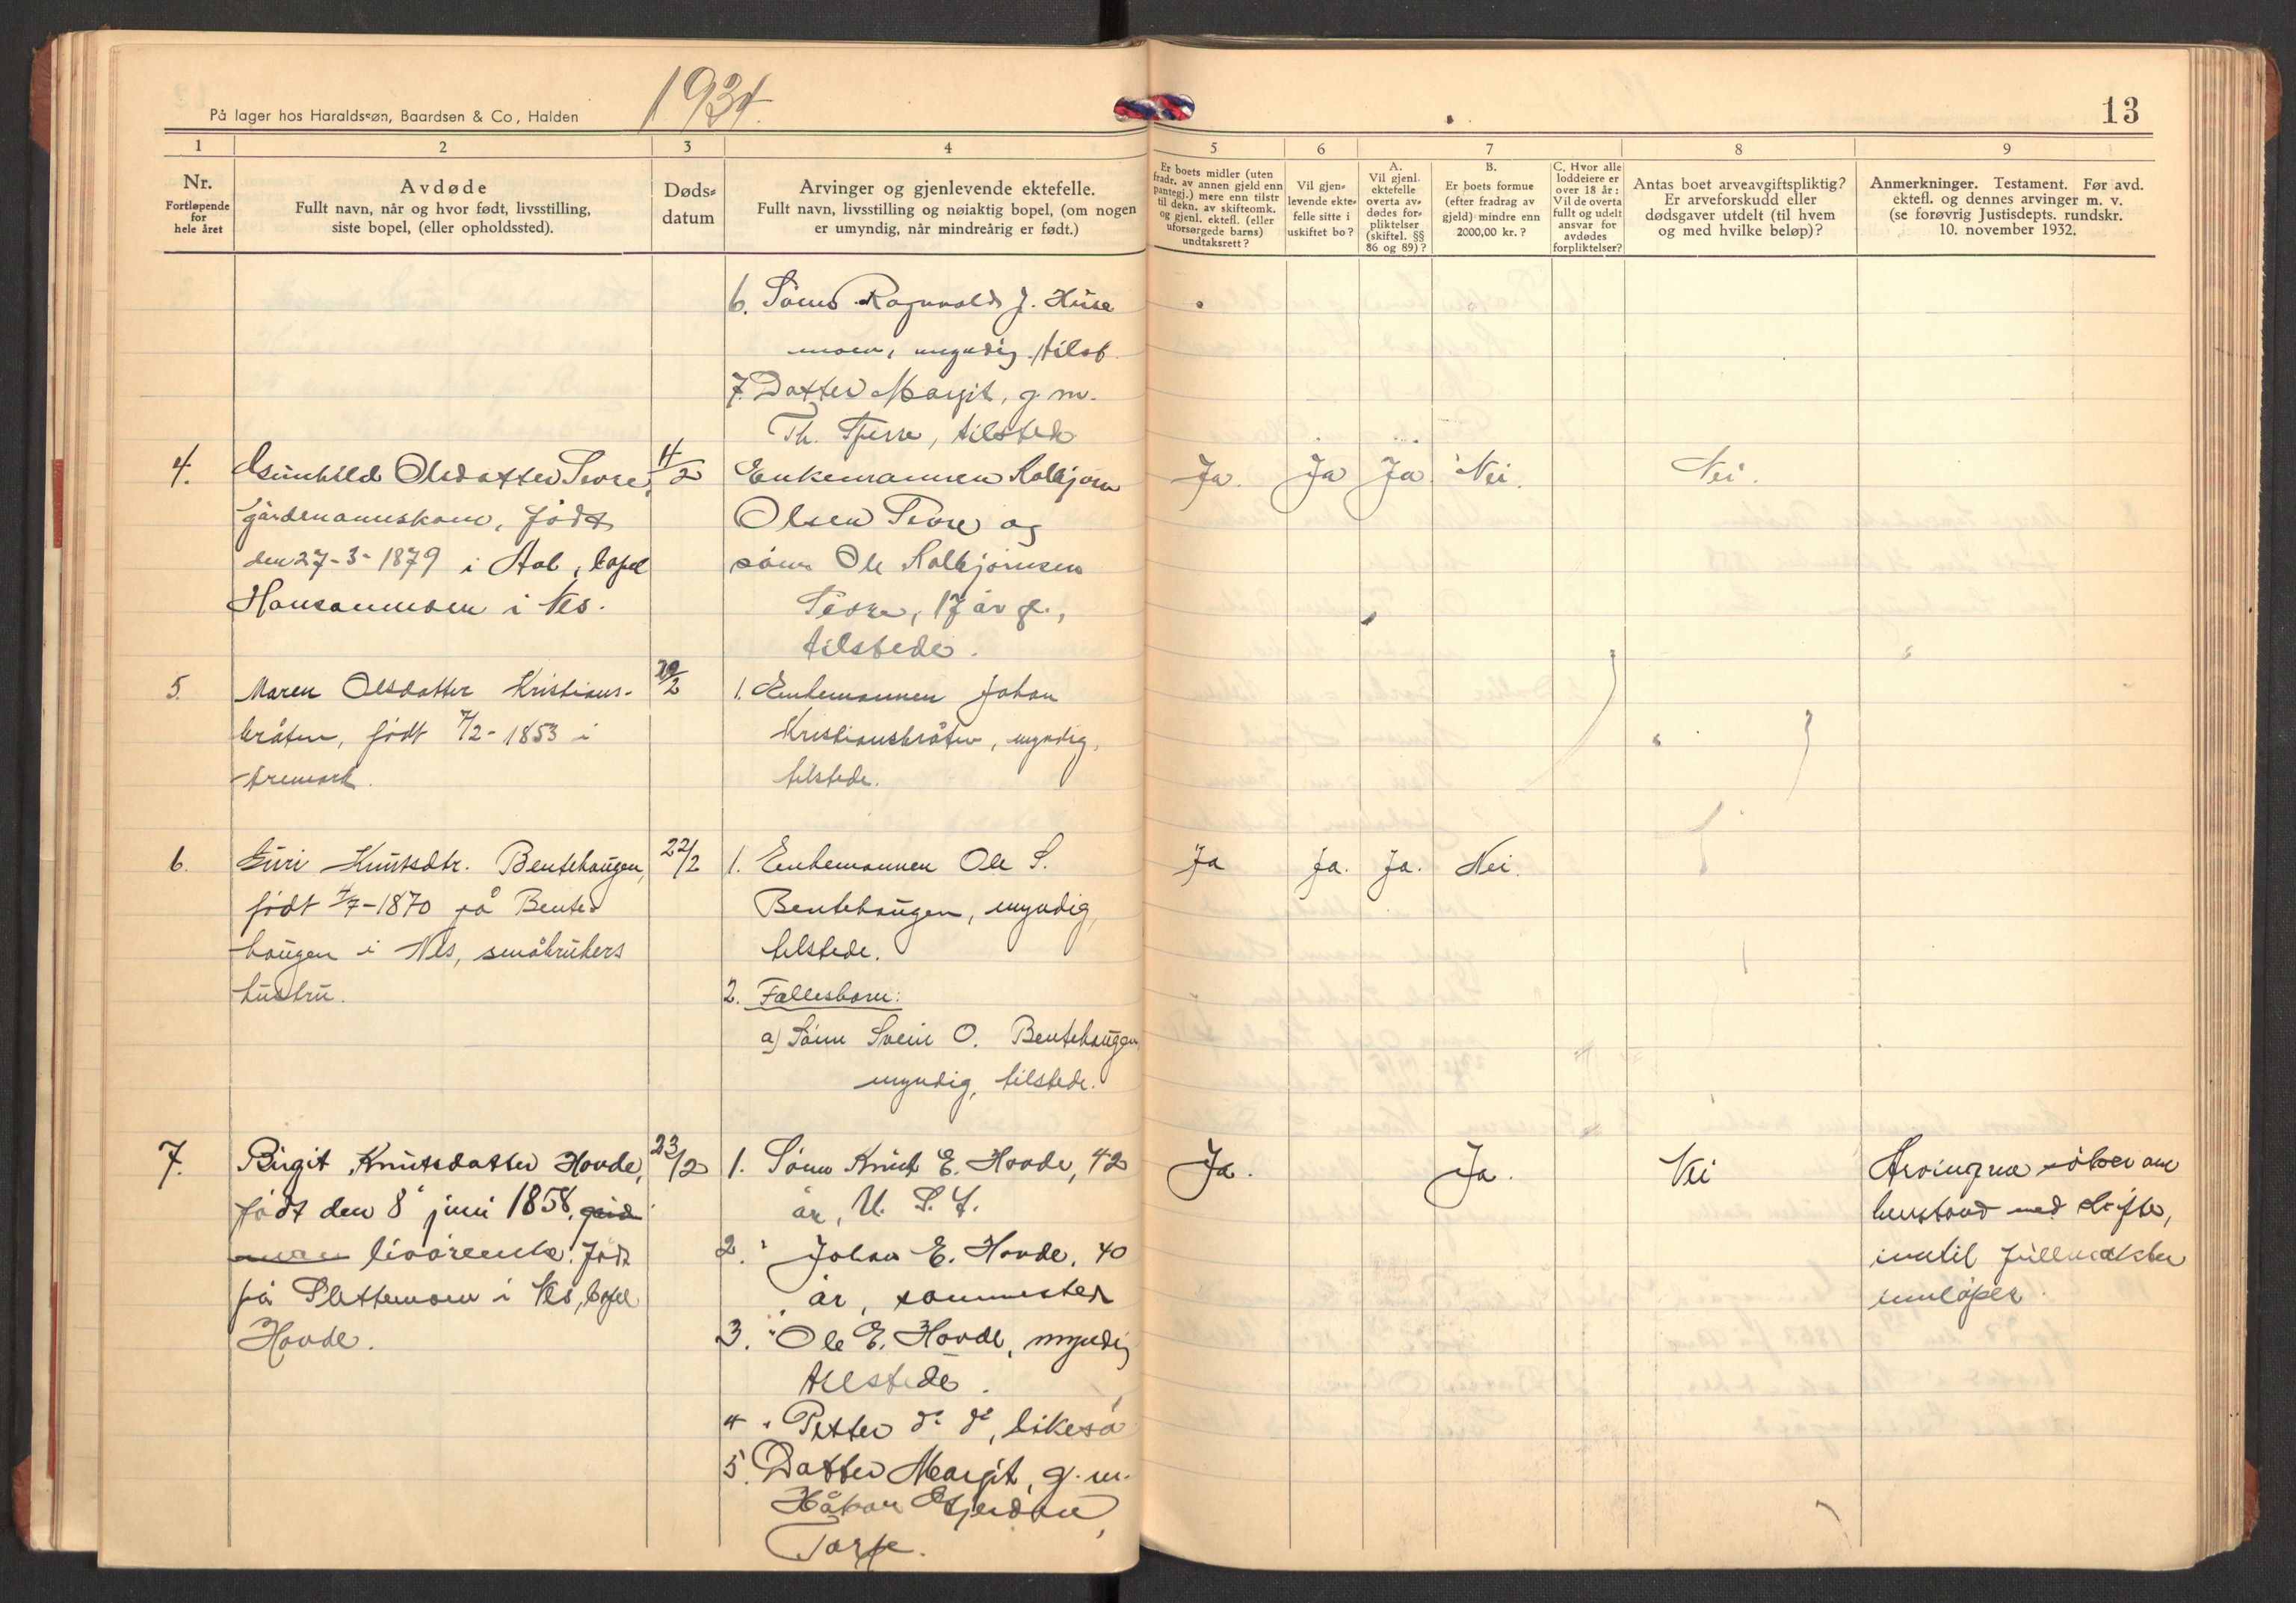 1934.
På lager hos Haraldssøn, Baardsen & Co, Halden
13
1 2 3 4 5 6 7 8 9
Nr.
Fortløpende
for
hele året
Avdøde
Fullt navn, når og hvor født, livsstilling,
siste bopel, (eller opholdssted).
Døds-
datum
Arvinger og gjenlevende ektefelle.
Fullt navn, livsstilling og nøiaktig bopel, (om nogen
er umyndig, når mindreårig er født.)
Er boets midler (uten
fradr. av annen gjeld enn
pantegj.) mere enn tilstr
til dekn. av skifteomk.
og gjenl. ektefl. (eller
uforsørgede barns)
undtaksrett?
Vil gjen-
levende ekte-
felle sitte i
uskiftet bo?
A.
Vil gjenl.
ektefelle
overta av-
dødes for-
pliktelser
(skiftel. §§
86 og 89)?
B.
Er boets formue
(efter fradrag av
gjeld) mindre enn
2000,00 kr.?
C. Hvor alle
loddeiere er
over 18 år:
Vil de overta
fullt og udelt
ansvar for
avdødes
forpliktelser?
Antas boet arveavgiftspliktig?
Er arveforskudd eller
dødsgaver utdelt (til hvem
og med hvilke beløp)?
Anmerkninger. Testament. Før avd.
ektefl. og dennes arvinger m. v.
(se forøvrig Justisdepts. rundskr.
10. november 1932.
6. Sönn Ragnvald J. Huse
moen, myndig, tilst.
7. Datter Margit, g. m.
Th. , tilstede
4. Gunhild Olsdatter Sevre, 4/2 Enkemannen Kolbjörn Ja. Ja Ja Nei. Nei.
gårdmannskone, født Olsen Sevre og
den 27-3-1879 i Aal, bopel sönn Ole Kolbjörnsen
Hansemmoen i Nes. Sevre, 17 år gl.,
tilstede.
5. Maren Olsdatter Kristians- 20/2 1. Enkemannen Johan
bråten, födt 7/2-1853 i Kristiansbråten, myndig,
tilstede.
6. Guri Knutsdtr. Bentehaugen, 22/2 1. Enkemannen Ole S. Ja Ja. Ja. Nei.
födt 4/7-1870 på Bente- Bentehaugen, myndig,
haugen i Nes, småbrukers tilstede.
hustru. 2. Fellesbarn:
a) Sönn Svein O. Bentehaugen
myndig, tilstede.
7. Birgit Knutsdatter Hovde, 23/2 1. Sönn Knut E. Hovde, 42 Ja. Ja. Nei Arvingene söker om
född den 8 juni 1858, år, U. S. A. henstand med skifte,
livörenke. Född 2. " Johan E. Hovde, 40 inntil fullmakter
på Slettemoen i Nes, bopel år, sammesteds innlöper.
Hovde. 3. " Ole E. Hovde, myndig
tilstede.
4 " Petter do do, likeså
5. Datter Margit, g. m.
Håkon
Torpe.